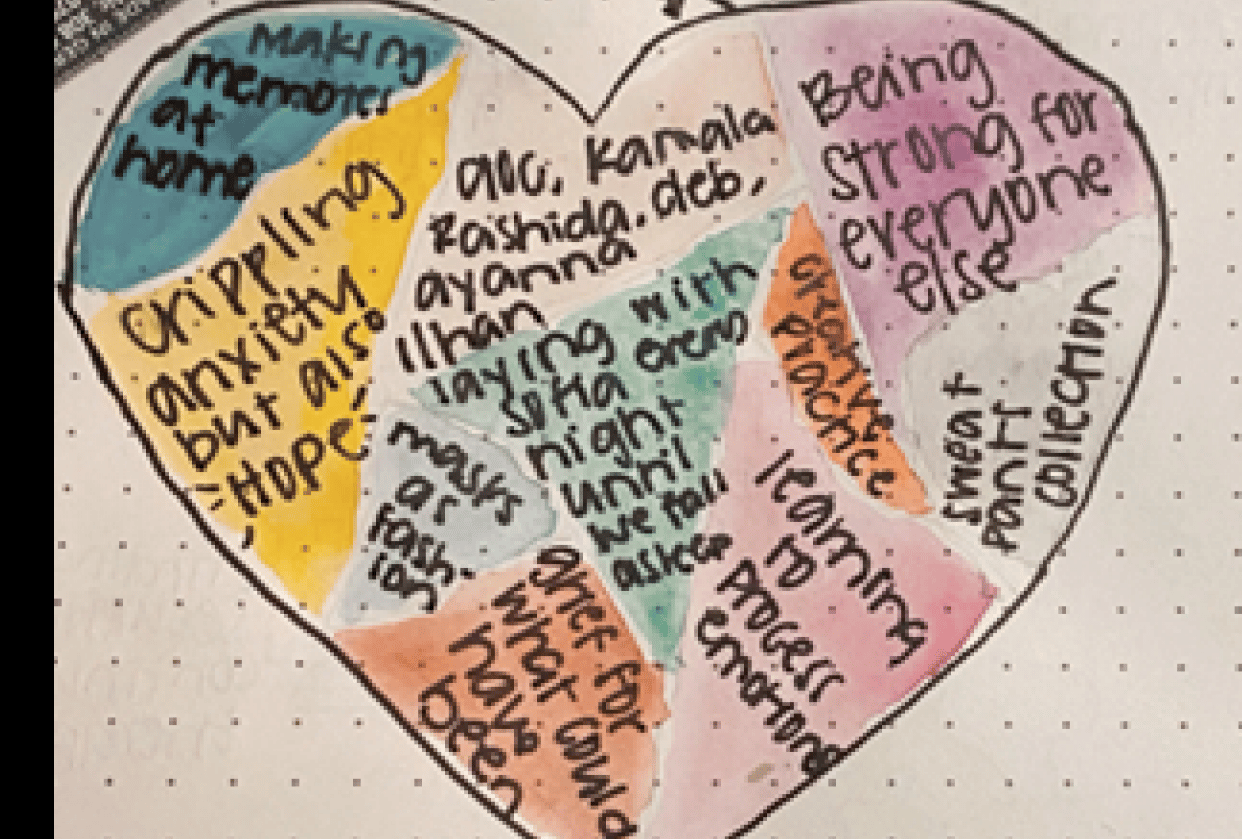 Making
memories
at
home
crippling
anxiety
but also
Hope
aoc, Kamala
Rashida, deb,
ayanna
Ilhan
Being
strong for
everyone
else
laying with
every
night
until
we fall
asleep
creative
practice
sweat
pant
collection
masks
as
fash
ion.
grief for
what could
have
been
learning
to
process
emotions